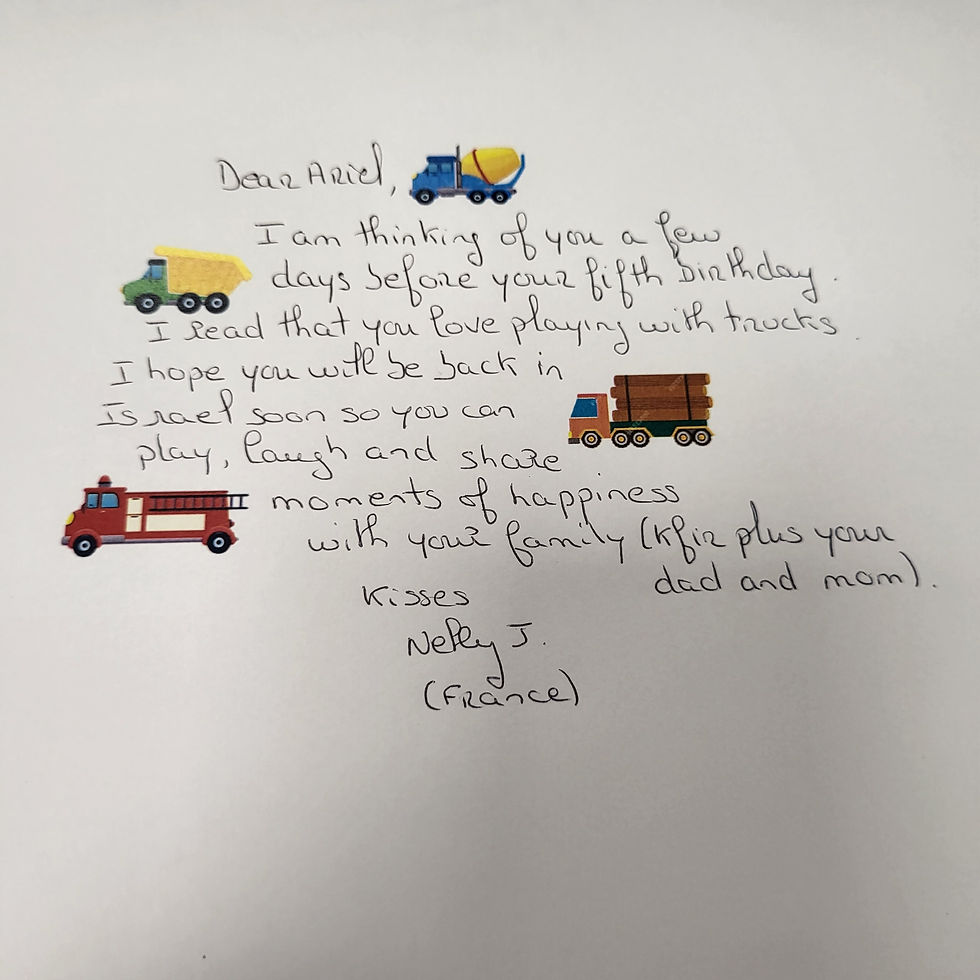 Dear Ariel,
I am thinking of you a few
days before your fifth birthday.
I read that you love playing with trucks
I hope you will be back in
Israel soon so you can
play, laugh and share
moments of happiness
with your family (Kfir plus your
dad and mom).
Kisses
Nelly J.
(France)